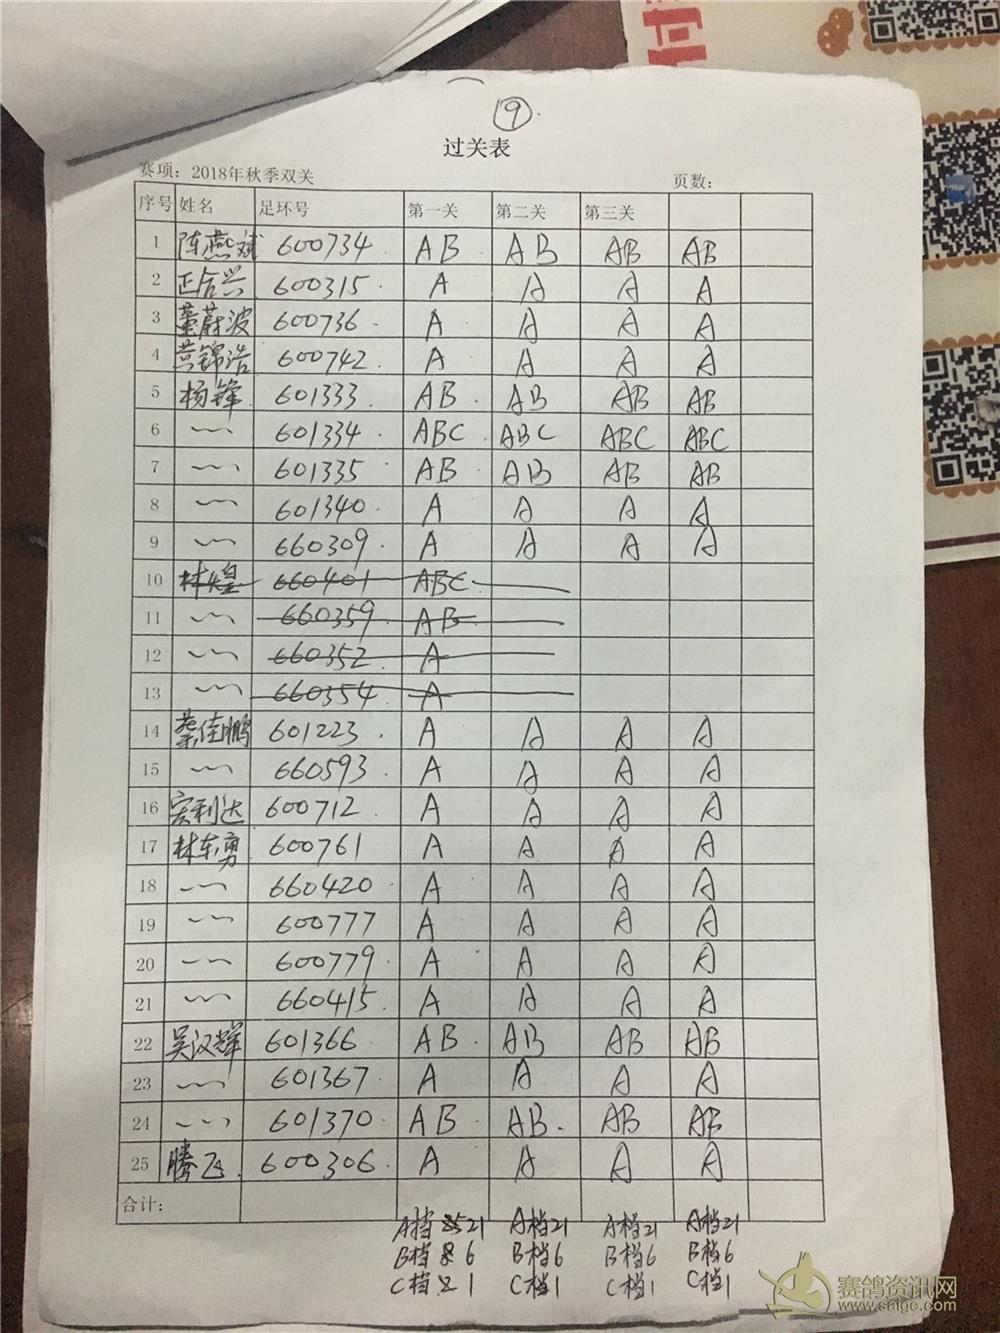 付
⑨
过关表
赛项：2018年秋季双关 页数：
序号 姓名 足环号 第一关 第二关 第三关
1 陈燕斌 600734 AB AB AB AB
2 正合兴 600315 A A A A
3 董蔚波 600736 A A A A
4 黄锦浩 600742 A A A A
5 杨锋 601333 AB AB AB AB
6 〃 601334 ABC ABC ABC ABC
7 〃 601335 AB AB AB AB
8 〃 601340 A A A A
9 〃 660309 A A A A
10 林煌 660401 ABC
11 〃 660359 AB
12 〃 660352 A
13 〃 660354 A
14 蔡佳鹏 601223 A A A A
15 〃 660593 A A A A
16 宏利达 600712 A A A A
17 林东勇 600761 A A A A
18 〃 660420 A A A A
19 〃 600777 A A A A
20 〃 600779 A A A A
21 〃 660415 A A A A
22 吴汉辉 601366 AB AB AB AB
23 〃 601367 A A A A
24 〃 601370 AB AB AB AB
25 腾飞 600306 A A A A
合计：
A档 21 A档21 A档21 A档21
B档 6 B档6 B档6 B档6
C档 1 C档1 C档1 C档1
赛鸽资讯网
www.saige.com